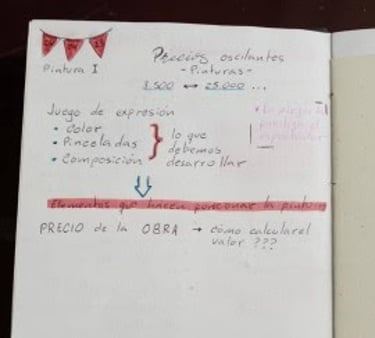 Pintura I
Precios oscilantes
- Pinturas -
1.500 ↔ 25.000 ...
Juego de expresión
• Color
• Pinceladas
• Composición
} lo que
debemos
desarrollar
Elementos que hacen funcionar la pintura
PRECIO de la OBRA → cómo calcular el
valor ???